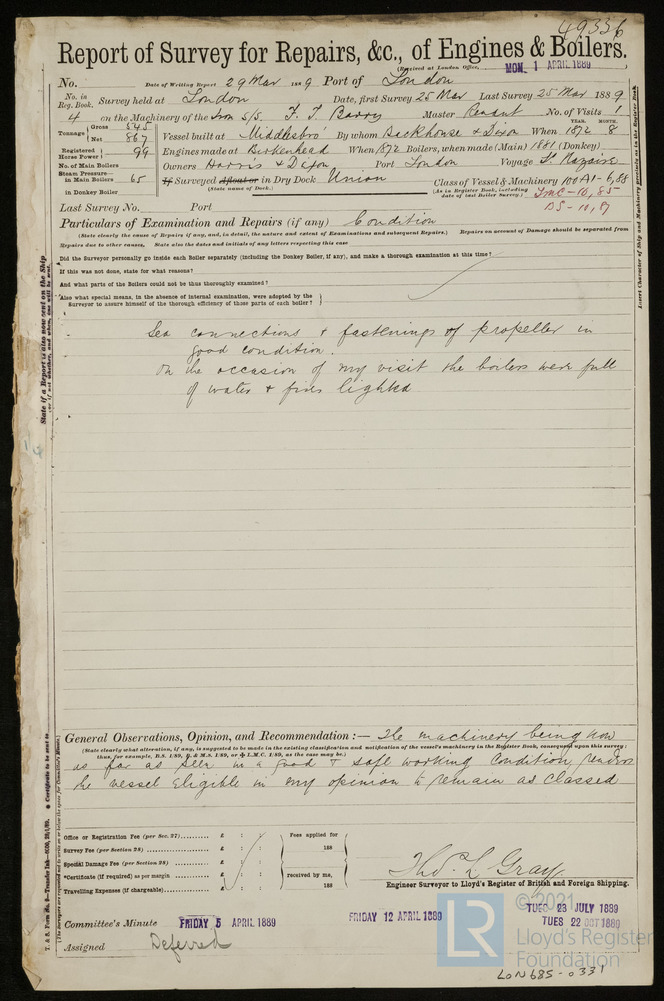 49336
Report of Survey for Repairs, &c., of Engines & Boilers.
(Received at London Office, MON. 1 APRIL 1889)
No. Date of Writing Report 29 Mar 1889 Port of London
No. in Reg. Book. Survey held at London Date, first Survey 25 Mar Last Survey 25 Mar 1889
4 on the Machinery of the Iron S/S. F. T. Barry Master No. of Visits 1
Tonnage { Gross 545 Net 867 Vessel built at Middlesbro' By whom Backhouse & Dixon When YEAR. 1872 MONTH. 8
Registered Horse Power } 99 Engines made at Birkenhead When 1872 Boilers, when made (Main) 1881 (Donkey)
No. of Main Boilers Owners Harris & Dixon Port London Voyage St Nazaire
Steam Pressure— in Main Boilers 65 If Surveyed Afloat or in Dry Dock Union Class of Vessel & Machinery 100A1-6,88
in Donkey Boiler (State name of Dock.) (As in Register Book, including date of last Boiler Survey.) LMC-10,85
BS-10,87
Last Survey No. Port
Particulars of Examination and Repairs (if any) Condition
(State clearly the cause of Repairs if any, and, in detail, the nature and extent of Examinations and subsequent Repairs.) Repairs on account of Damage should be separated from
Repairs due to other causes. State also the dates and initials of any letters respecting this case
Did the Surveyor personally go inside each Boiler separately (including the Donkey Boiler, if any), and make a thorough examination at this time?
If this was not done, state for what reasons?
And what parts of the Boilers could not be thoroughly examined?
Also what special means, in the absence of internal examination, were adopted by the
Surveyor to assure himself of the thorough efficiency of those parts of each boiler? }
Sea connections & fastenings of propeller in
good condition.
On the occasion of my visit the boilers were full
of water & fires lighted.
General Observations, Opinion, and Recommendation:— The machinery being now
(State clearly what alteration, if any, is suggested to be made in the existing classification and notification of the vessel's machinery in the Register Book, consequent upon this survey;
thus, for example, B.S. 1/89, B. & M.S. 1/89, or L.M.C. 1/89, as the case may be.)
as far as seen in a good & safe working condition renders
the vessel eligible in my opinion to remain as classed
Office or Registration Fee (per Sec. 27)........... £ : : Fees applied for
Survey Fee (per Section 28) ............... £ : : 188
Special Damage Fee (per Section 28) ........... £ : :
*Certificate (if required) as per margin ........ £ : : received by me,
Travelling Expenses (if chargeable)........... £ : : 188
Thos. L Gray
Engineer Surveyor to Lloyd's Register of British and Foreign Shipping.
Committee's Minute FRIDAY 5 APRIL 1889 FRIDAY 12 APRIL 1889 TUES 23 JULY 1889
TUES 22 OCT 1889
Assigned Deferred
© 2021
LR
Lloyd's Register
Foundation
LON685-0331
State if a Report is also now sent on the Ship
Insert Character of Ship and Machinery precisely as in the Register Book.
* Certificate to be sent to